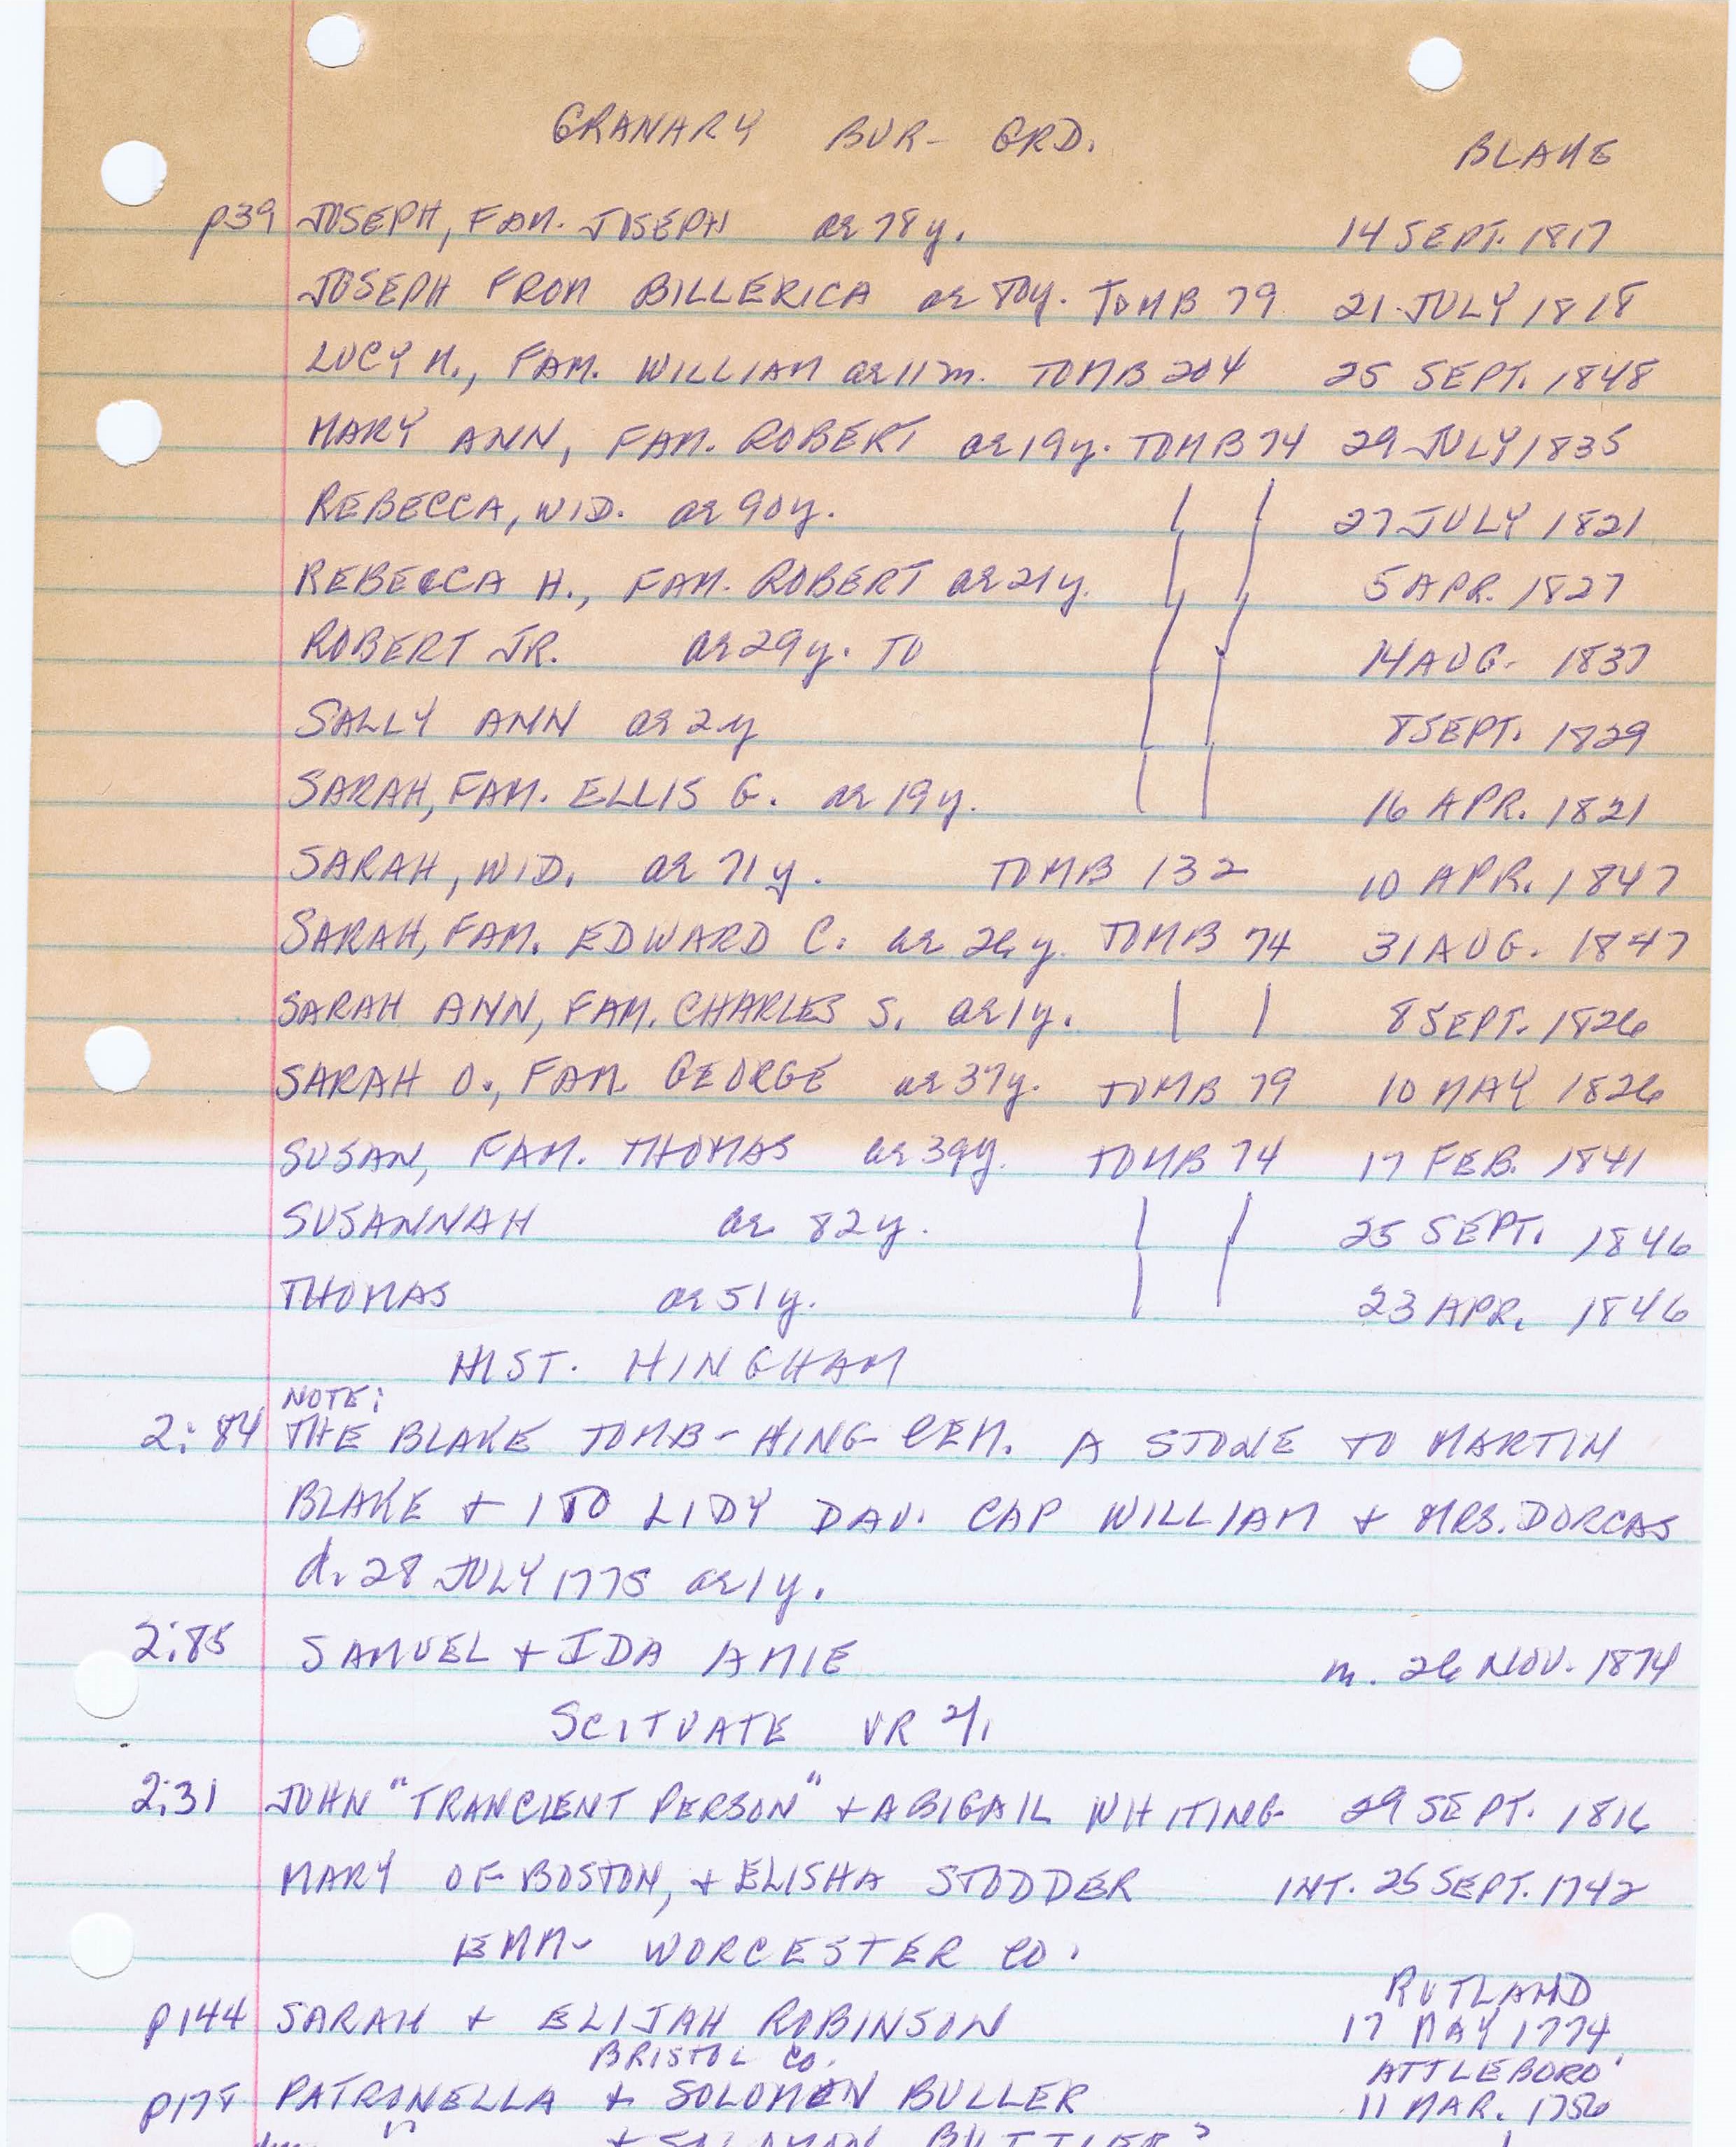 GRANARY BUR- GRD. BLAKE
p39 JOSEPH, FAM. JOSEPH ae 78y. 14 SEPT. 1817
JOSEPH FROM BILLERICA ae 80y. TOMB 79 21 JULY 1818
LUCY M., FAM. WILLIAM ae 11m. TOMB 204 25 SEPT. 1848
MARY ANN, FAM. ROBERT ae 19y. TOMB 74 29 JULY 1835
REBECCA, WID. ae 90y. | | 27 JULY 1821
REBECCA H., FAM. ROBERT ae 21y. | | 5 APR. 1827
ROBERT JR. ae 29y. TO | | 14 AUG. 1837
SALLY ANN ae 2y | | 8 SEPT. 1829
SARAH, FAM. ELLIS G. ae 19y. | | 16 APR. 1821
SARAH, WID. ae 71y. TOMB 132 10 APR. 1847
SARAH, FAM. EDWARD C. ae 26y. TOMB 74 31 AUG. 1847
SARAH ANN, FAM. CHARLES S. ae 1y. | | 8 SEPT. 1826
SARAH O., FAM. GEORGE ae 37y. TOMB 79 10 MAY 1826
SUSAN, FAM. THOMAS ae 39y. TOMB 74 17 FEB. 1841
SUSANNAH ae 82y. | | 25 SEPT. 1846
THOMAS ae 51y. | | 23 APR. 1846
HIST. HINGHAM
NOTE:
2:84 THE BLAKE TOMB - HING- CEM. A STONE TO MARTIN
BLAKE + 1 TO LIDY DAU. CAP WILLIAM + MRS. DORCAS
d. 28 JULY 1775 ae 1y.
2:85 SAMUEL + IDA AMIE m. 26 NOV. 1874
SCITUATE VR 2/1
2:31 JOHN "TRANCIENT PERSON" + ABIGAIL WHITING 29 SEPT. 1816
MARY OF BOSTON, + ELISHA STODDER INT. 25 SEPT. 1742
EMM- WORCESTER CO.
RUTLAND
p144 SARAH + ELIJAH ROBINSON 17 MAY 1774
BRISTOL CO. ATTLEBORO'
p178 PATRONELLA + SOLOMON BULLER 11 MAR. 1756
" + SOLAMAN BUTTLER?